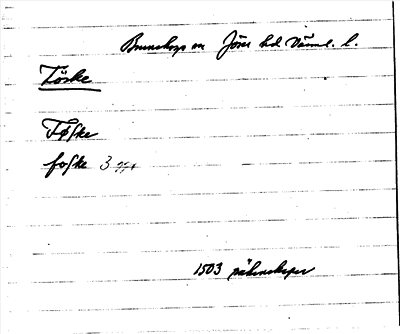 Brunskogs sn Jösse hd Värml. l.
Töske
Tøſke
foſke 3 ggr
1503 räkenskaper